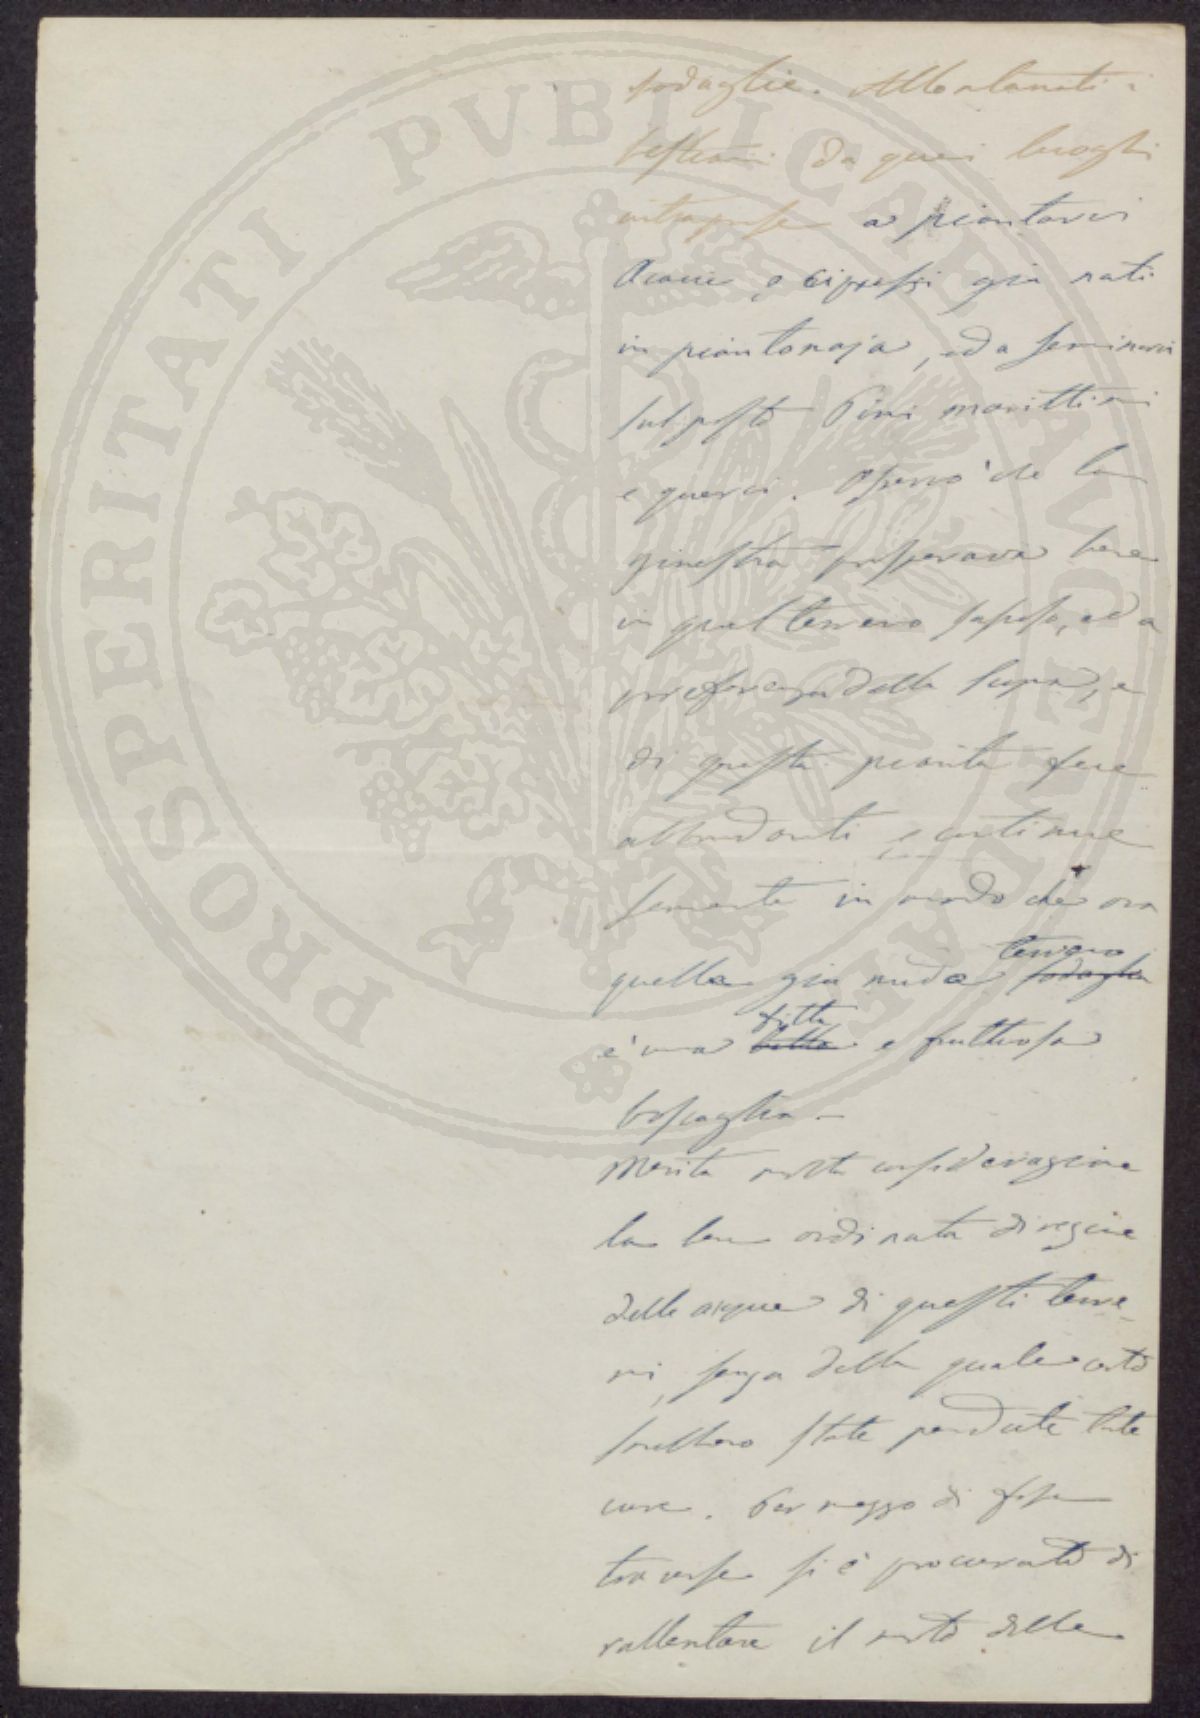 PROSPERITATI PUBLICAE AUGENDAE
sodaglie. Allontanati i
bestiami da quei luoghi
intraprese a piantarvi
Acacie e cipressi già nati
in piantonaja, ed a seminarvi
sul posto Pini marittimi
e querci. Osservò che la
ginestra prosperava bene
in quel terreno sassoso, ed a
preferenza della scopa, e
di questa pianta fece
abbondanti e continue
sementa in modo che ora
quella già nuda terreno sodaglia
è una fitta bella e fruttuosa
boscaglia.
Merita molta considerazione
la bene ordinata direzione
delle acque di questi terre-
ni, senza della quale certo
sarebbero state perdute tante
cure. Per mezzo di fosse
traverse si è procurato di
rallentare il moto delle